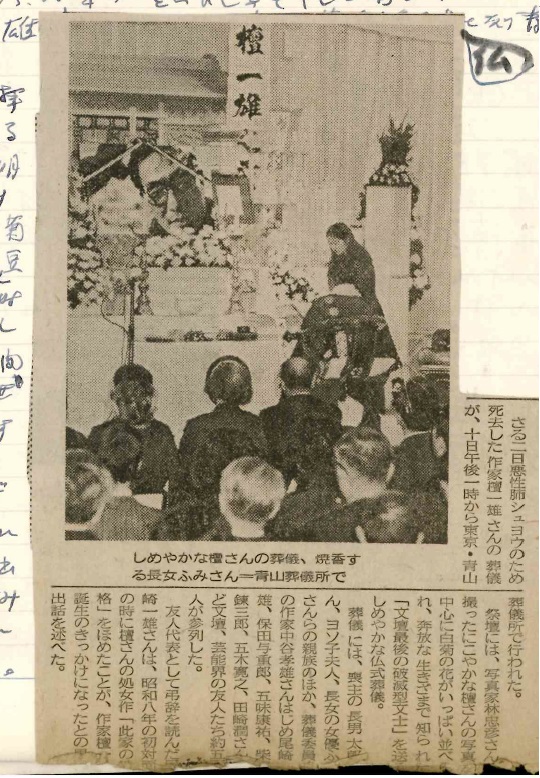 雄
仏
檀一雄
さる二日悪性肺シュヨウのため
死去した作家檀一雄さんの葬儀
が、十日午後一時から東京・青山
しめやかな檀さんの葬儀、焼香す
る長女ふみさん＝青山葬儀所で
葬儀所で行われた。
祭壇には、写真家林忠彦さん
撮ったにこやかな檀さんの写真
中心に白菊の花がいっぱい並べ
れ、奔放な生きざまで知られ
「文壇最後の破滅型文士」を送
しめやかな仏式葬儀。
葬儀には、喪主の長男太郎
ん、ヨソ子夫人、長女の女優ふ
さんらの親族のほか、葬儀委員
の作家中谷孝雄さんはじめ尾崎
雄、保田与重郎、五味康祐、柴
錬三郎、五木寛之、田崎潤さん
ど文壇、芸能界の友人たち約五
人が参列した。
友人代表として弔辞を読んだ
崎一雄さんは、昭和八年の初対
の時に檀さんの処女作「此家の
格」をほめたことが、作家檀
誕生のきっかけになったとの思
出話を述べた。